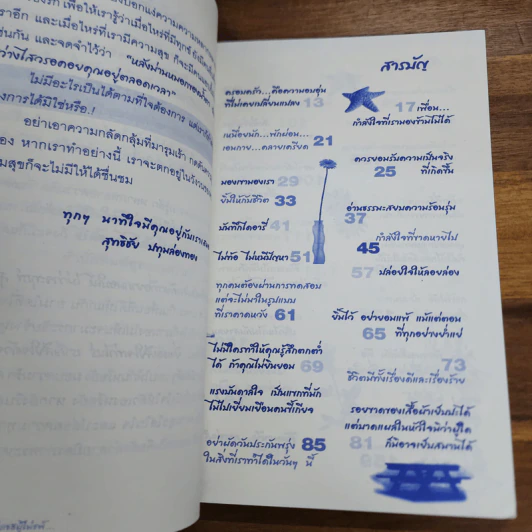 เราอีก และเมื่อไหร่ที่เรามีความสุข
เช่นกัน และจดจำไว้ว่า "หลังม่านหมอก
ว่างไสวรอคอยคุณอยู่ตลอดเวลา"
ไม่มีอะไรเป็นได้ตามที่ใจต้องการ
องการได้มิใช่หรือ.!
อย่าเอาความกลัดกลุ้มที่มารุมเร้า
อง หากเราทำอย่างนี้ เราจะตกอยู่ใน
มสุขก็จะไม่มีให้ได้ชื่นชม
ทุกๆ นาทีใจมีคุณอยู่กับเรา
สุทธิชัย ปทุมล่องทอง
สารบัญ
ครอบครัว...คือความอบอุ่น
ที่ไม่เคยเปลี่ยนแปลง 13
17 เพื่อน...
กำลังใจที่เรามองข้ามไม่ได้
เหนื่อยนัก...พักผ่อน...
เอนกาย...คลายเครียด 21
ควรยอมรับความเป็นจริง
25 ที่เกิดขึ้น
มองเขามองเรา 29
ยิ้มให้กับชีวิต 33
อ่านธรรมะสยบความร้อนรุ่ม
37
บันทึกไดอารี่ 41
กำลังใจที่ขาดหายไป
45
ไม่ท้อ ไม่หนีปัญหา 51
57 ปล่อยใจให้ลอยล่อง
ทุกคนต้องผ่านการทดสอบ
แต่จะไม่มาในรูปแบบ
ที่เราคาดหวัง 61
ยิ้มไว้ อย่ายอมแพ้ แม้แต่ตอน
65 ที่ทุกอย่างย่ำแย่
ไม่มีใครทำให้คุณรู้สึกตกต่ำ
ได้ ถ้าคุณไม่ยินยอม 69
73
ชีวิตมีทั้งเรื่องดีและเรื่องร้าย
แรงบันดาลใจ เป็นแขกที่มัก
ไม่ไปเยี่ยมเยือนคนขี้เกียจ
รอยขาดของเสื้อผ้าเย็บปะได้
แต่บาดแผลในหัวใจมิว่าผู้ใด
81 ก็มิอาจเย็บสมานได้
อย่าผัดวันประกันพรุ่ง 85
ในสิ่งที่เราทำได้ในวันๆ นี้